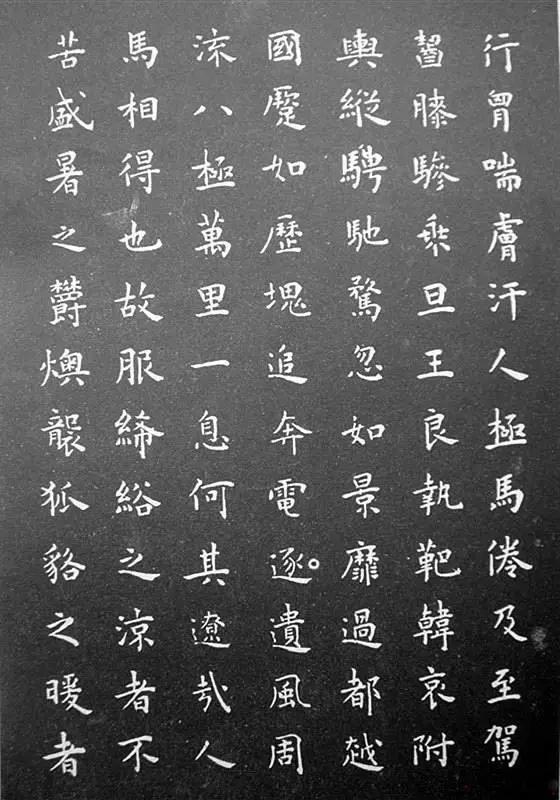 行胷喘膚汗人極馬倦及至駕
齧膝驂乗旦王良執靶韓哀附
輿縱騁馳騖忽如景靡過都越
國蹷如歷塊追奔電逐遺風周
流八極萬里一息何其遼哉人
馬相得也故服絺綌之涼者不
苦盛暑之欝燠襲狐貉之暖者